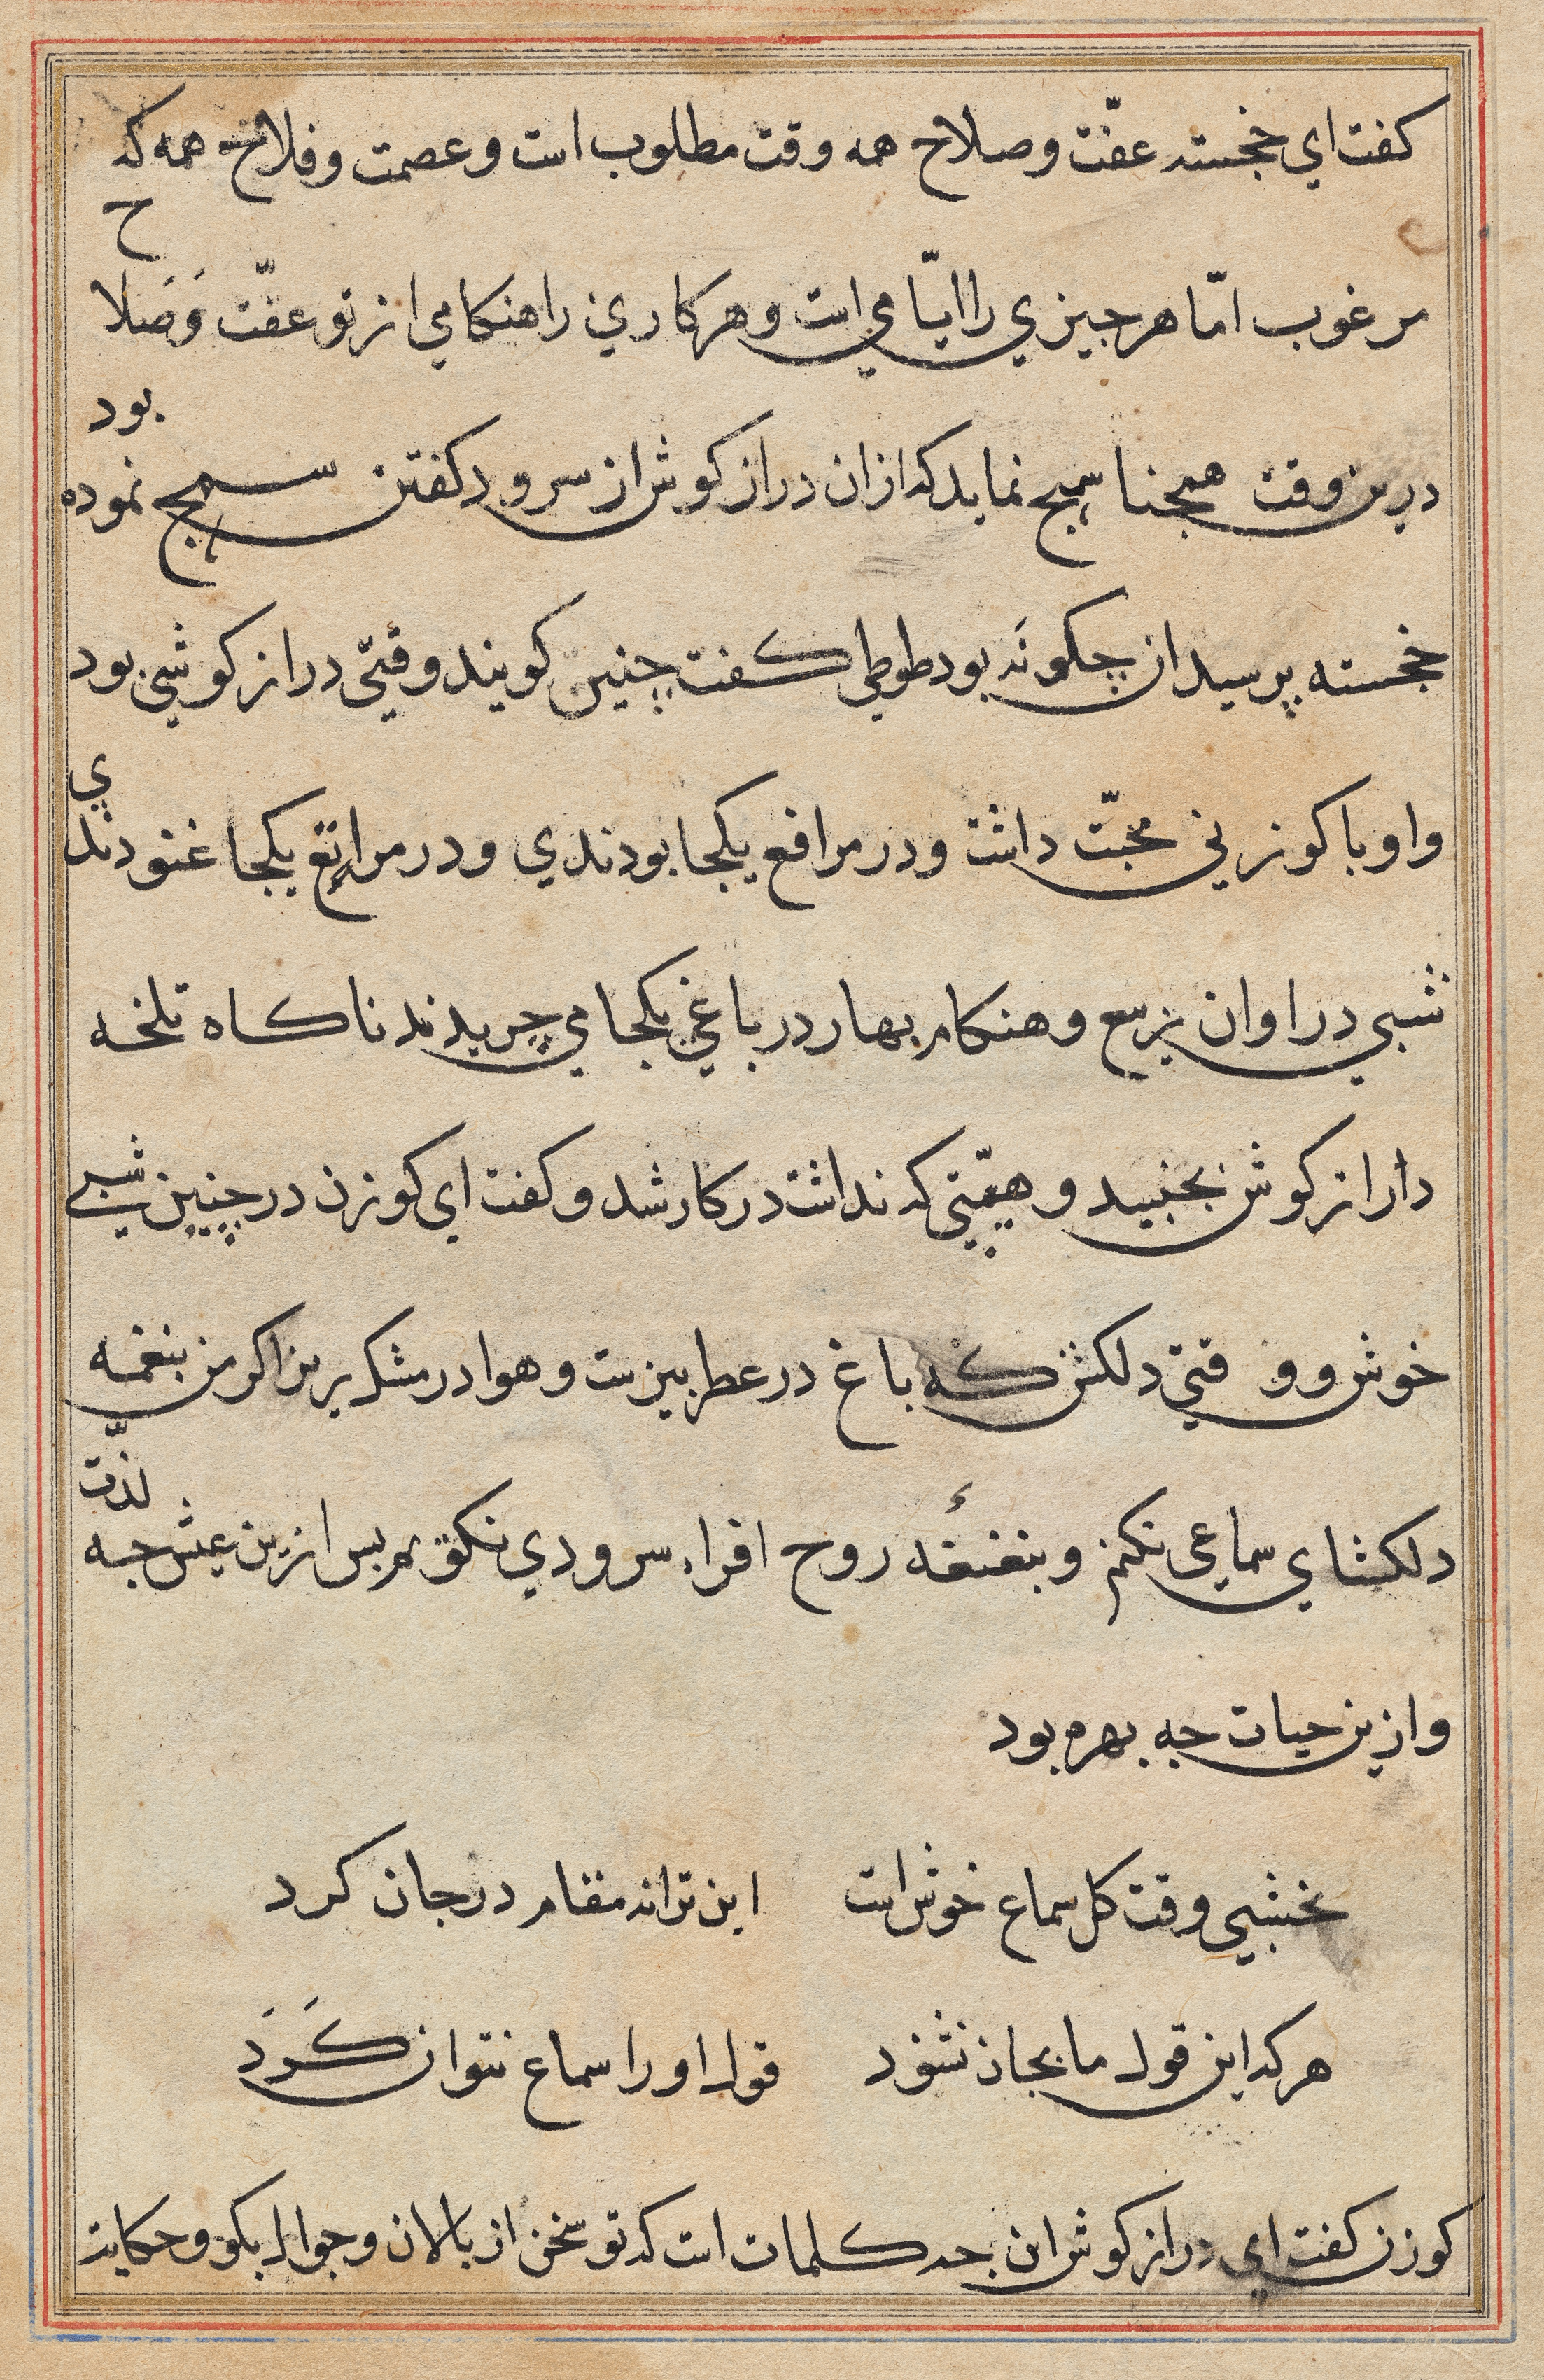 کفت اي خجسته عفّت و صلاح همه وقت مطلوب است و عصمت و فلاح همه که
مرغوب امّا هر جیزي را ایّامي است و هر کاري را هنکامي از تو عفّت وَصَلاح
درین وقت همجنا سمج نماید که ازان دراز کوش از سرود کفتن سمج نموده بود
خجسته پرسید ان چکونَه بود طوطي کفت چنین کویند وقتي دراز کوشي بود
و او با کوزني محبّت داشت و در مرافع یکجا بودندي و در مراتع یکجا غنودندي
شبي در اوان ربیع و هنکام بهار در باغي یکجا مي چریدند ناکاه تلخه
دارازکوش بجنبید و هیمّتي که نداشت در کار شد و کفت اي کوزن در چنین شبي
خوش و وقتي دلکش که باغ در عطر بیزست و هوا در مشک ریزن اکر من بنغمه
دلکشاي سماعي نکنم و بنغنغه روح افزاء سرودي نکویم بس ازین عیش جه لذّت
و ازین حیات جه بهره بود
نخشبي وقت کل سماع خوش است این ترانه مقام در جان کرد
هر که این قول ما بجان نشنود قول او را سماع نتوان کَرَد
کوزن کفت اي دراز کوش این جه کلمات است که تو سخن از بالان و جوال بکو و حکایت